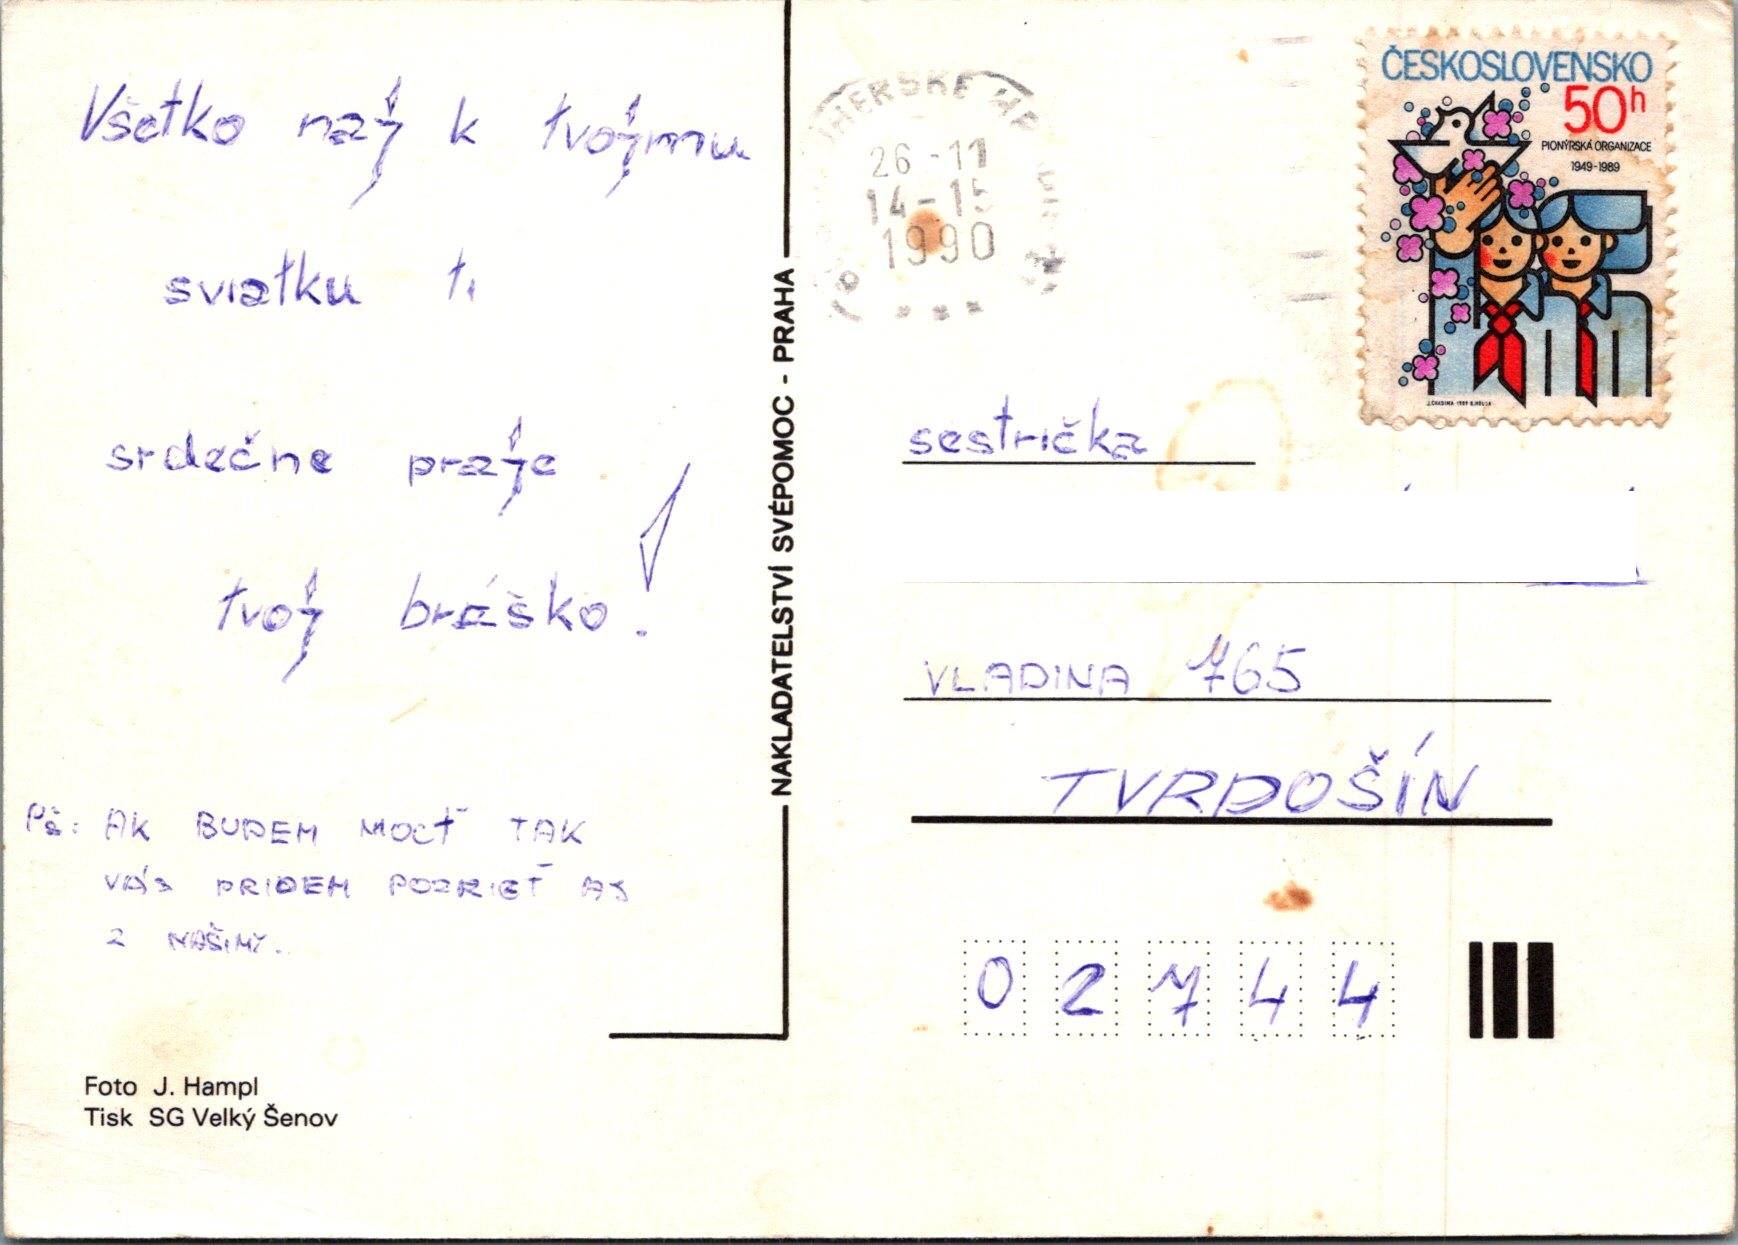 Všetko naj k tvojmu
sviatku ti
srdečne praje
tvoj bráško!
PS: AK BUDEM MOCŤ TAK
VÁS PRIDEM POZRIEŤ AJ
Z NAŠIMY.
Foto J. Hampl
Tisk SG Velký Šenov
NAKLADATELSTVÍ SVÉPOMOC - PRAHA
26-11
14-15
1990
ČESKOSLOVENSKO
50h
PIONÝRSKÁ ORGANIZACE
1949-1989
sestrička
VLADINA 765
TVRDOŠÍN
02744